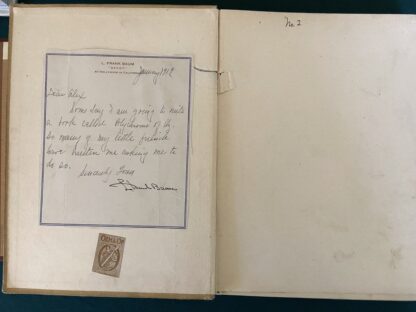 L. FRANK BAUM
"OZCOT"
AT HOLLYWOOD IN CALIFORNIA
January 1912
Dear Alex,
Some day I am going to write
a book called Polychrome of Oz,
so many of my little friends
have written me asking me to
do so.
Sincerely Yours
L. Frank Baum
No 2